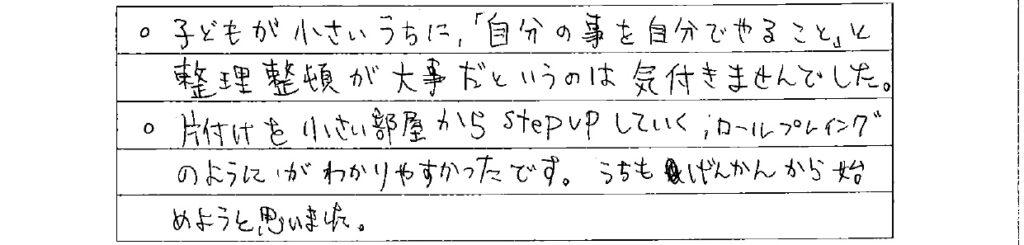 ○ 子どもが小さいうちに、「自分の事を自分でやること」と
整理整頓が大事だというのは気付きませんでした。
○ 片付けを小さい部屋からstepupしていく、"ロールプレイング
のように"がわかりやすかったです。うちもげんかんから始
めようと思いました。